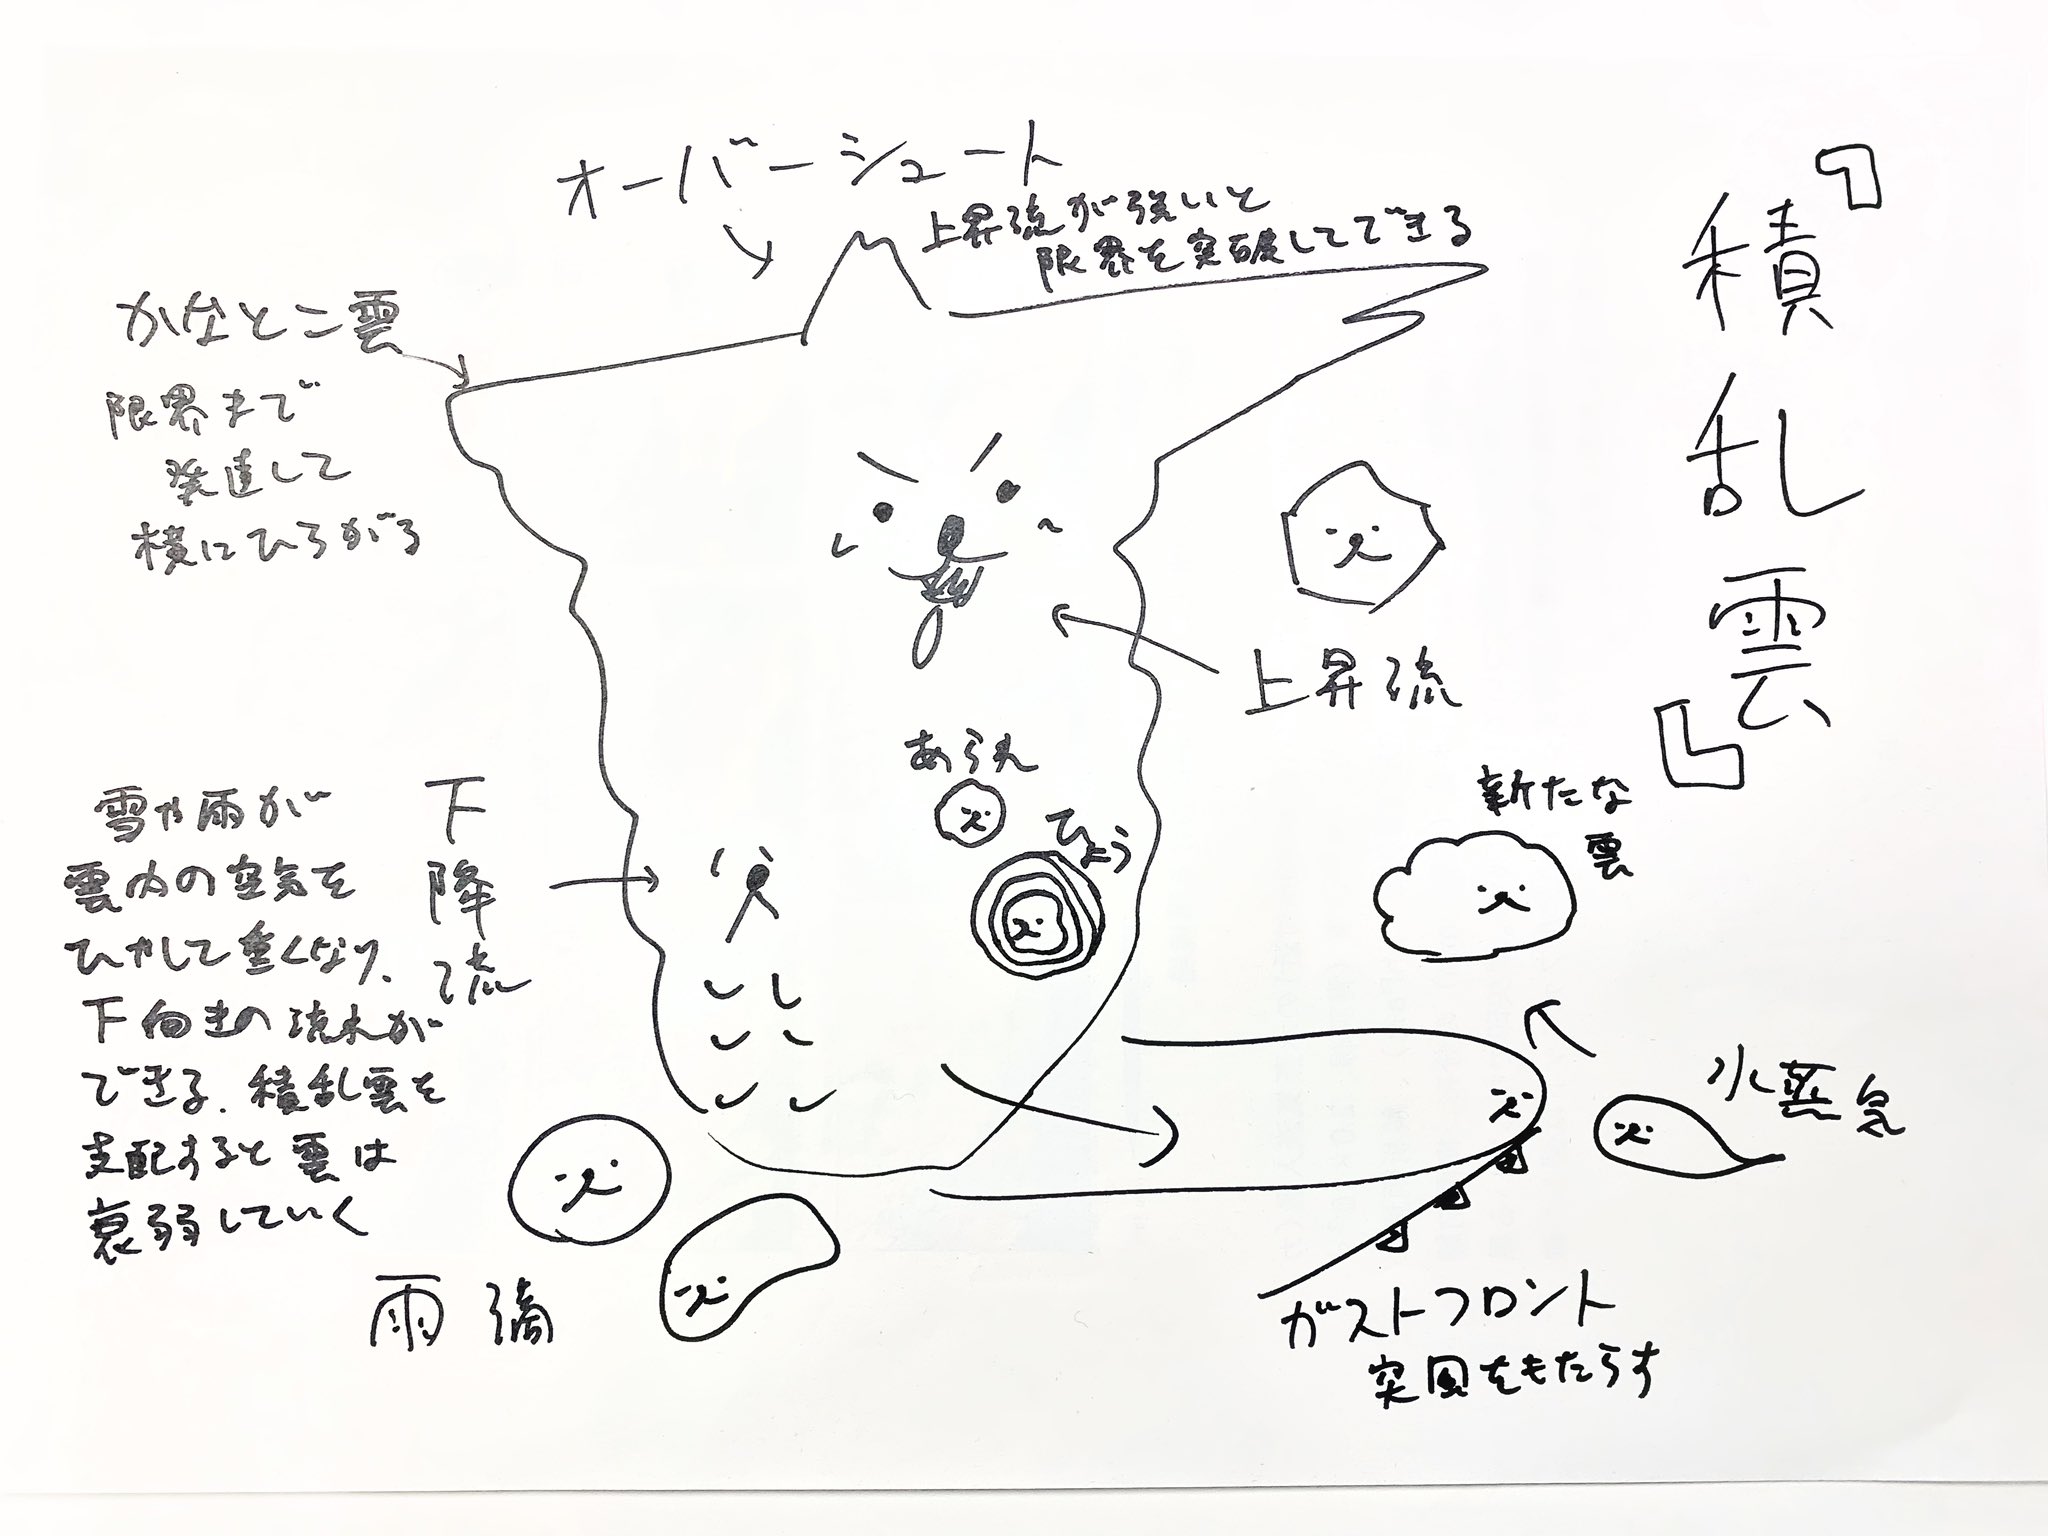 『積乱雲』
オーバーシュート
上昇流が強いと
限界を突破してできる
かなとこ雲
限界まで
発達して
横にひろがる
上昇流
あられ
ひょう
新たな
雲
下降流
雪や雨が
雲内の空気を
ひやして重くなり、
下向きの流れが
できる. 積乱雲を
支配すると雲は
衰弱していく
水蒸気
雨滴
ガストフロント
突風をもたらす